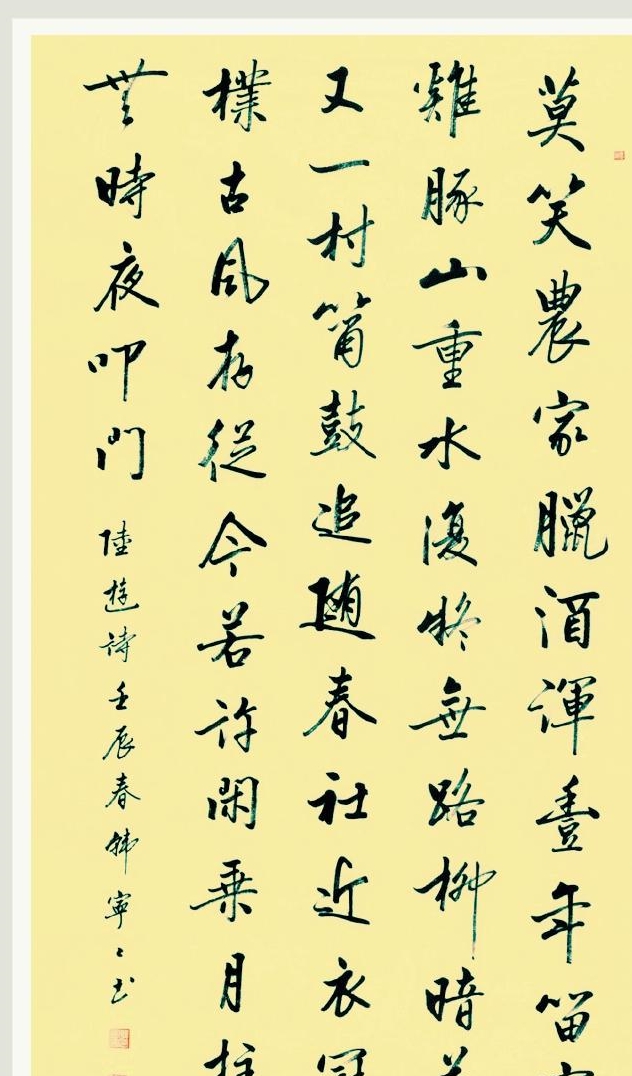 莫笑農家臘酒渾豊年留
雞豚山重水復疑無路柳暗
又一村簫鼓追随春社近衣冠
樸古風存從今若許閑乗月拄
無時夜叩門
陸游詩壬辰春韩寧〻书